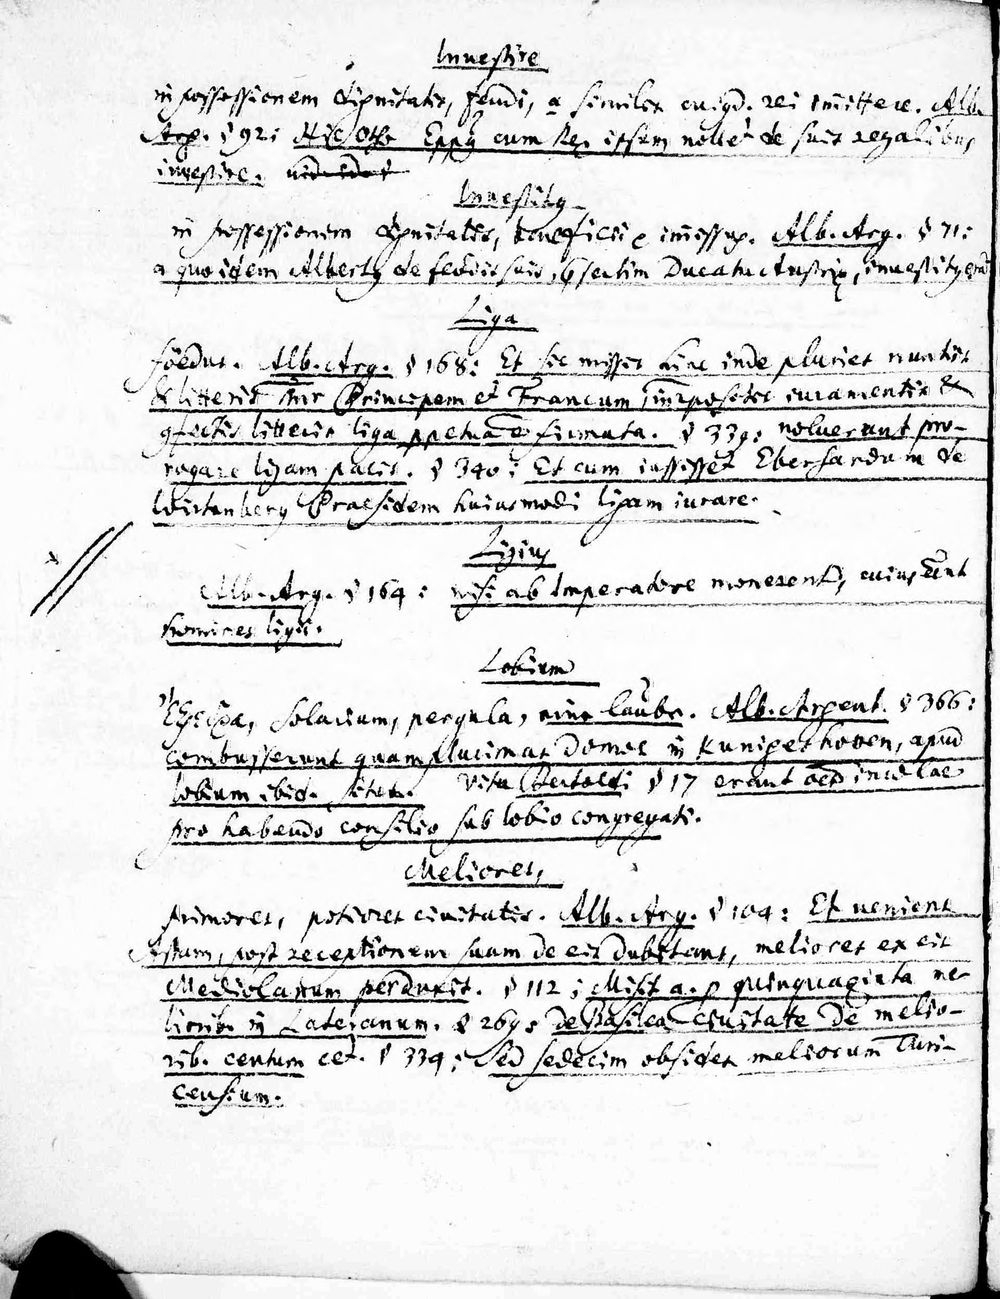 Investire
in possessionem dignitatis, feudi, a similis cuiqd. rei imittere. Alb.
Arg. § 92: Hic Otho Eppq cum Rex ipsum nollet de suis regalibus
investire.
Investitq
in possessionem dignitatis, beneficii imissup. Alb. Arg. § 71:
a quo idem Albertq de fedis suis, Ducatu Austriæ, investitq
Liga
foedus. Alb. Arg. § 168: Et sic missis hinc inde pluries nuntiis
& litteris Principem et Francum, impositis iuramentis &
litteris liga ppetua firmata. § 339: noluerunt pro-
rogare ligam pacis. § 340: Et cum iussisset Eberhardum de
Wirtenberg Praesidem huiusmodi ligam iurare.
Ligius
Alb. Arg. § 164: nisi ab Imperatore monerent, cuius
homines ligii.
Lobium
solarium, pergula, eine laube. Alb. Argent. § 366:
combusserunt quamplurimas domos in Kunigeshoven, apud
lobium ibid. sitas. Vita Bertoldi § 17 erant
pro habendo consilio sub lobio congregati.
Meliores,
primores, potiores civitatis. Alb. Arg. § 104: Et venient
Astam, post receptionem suam de eis dubitans, meliores ex eis
Mediolanum perduxit. § 112: Misit a. p quinquaginta me-
liorib. in Lateranum. § 269: de Basilea Civitate De melio-
rib. centum cet. § 334: Sed sedecim obsides meliorum Turi-
censium.